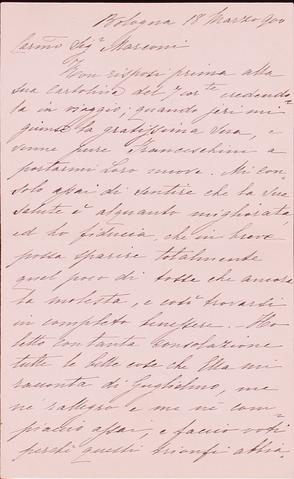 Bologna 18 Marzo 900
Carma Siga Marconi
Non risposi prima alla
sua cartolina del 7 corte credendo
la in viaggio, quando jeri mi
giunse la gratissima sua, e
venne pure Franceschini a
portarmi Loro nuove. Mi con,
solo assai di sentire che la sua
salute è alquanto migliorata,
ed ho fiducia, che in breve
possa sparire totalmente
quel poco di tosse che ancora
la molesta, e così trovarsi
in completo benessere. Ho
letto con tanta consolazione
tutte le belle cose che Ella mi
racconta di Guglielmo, me
ne rallegro e me ne com,
piaccio assai, e faccio voti
perchè questi trionfi abbia,